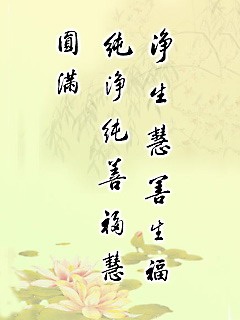 净生慧善生福
纯净纯善福慧
圓满